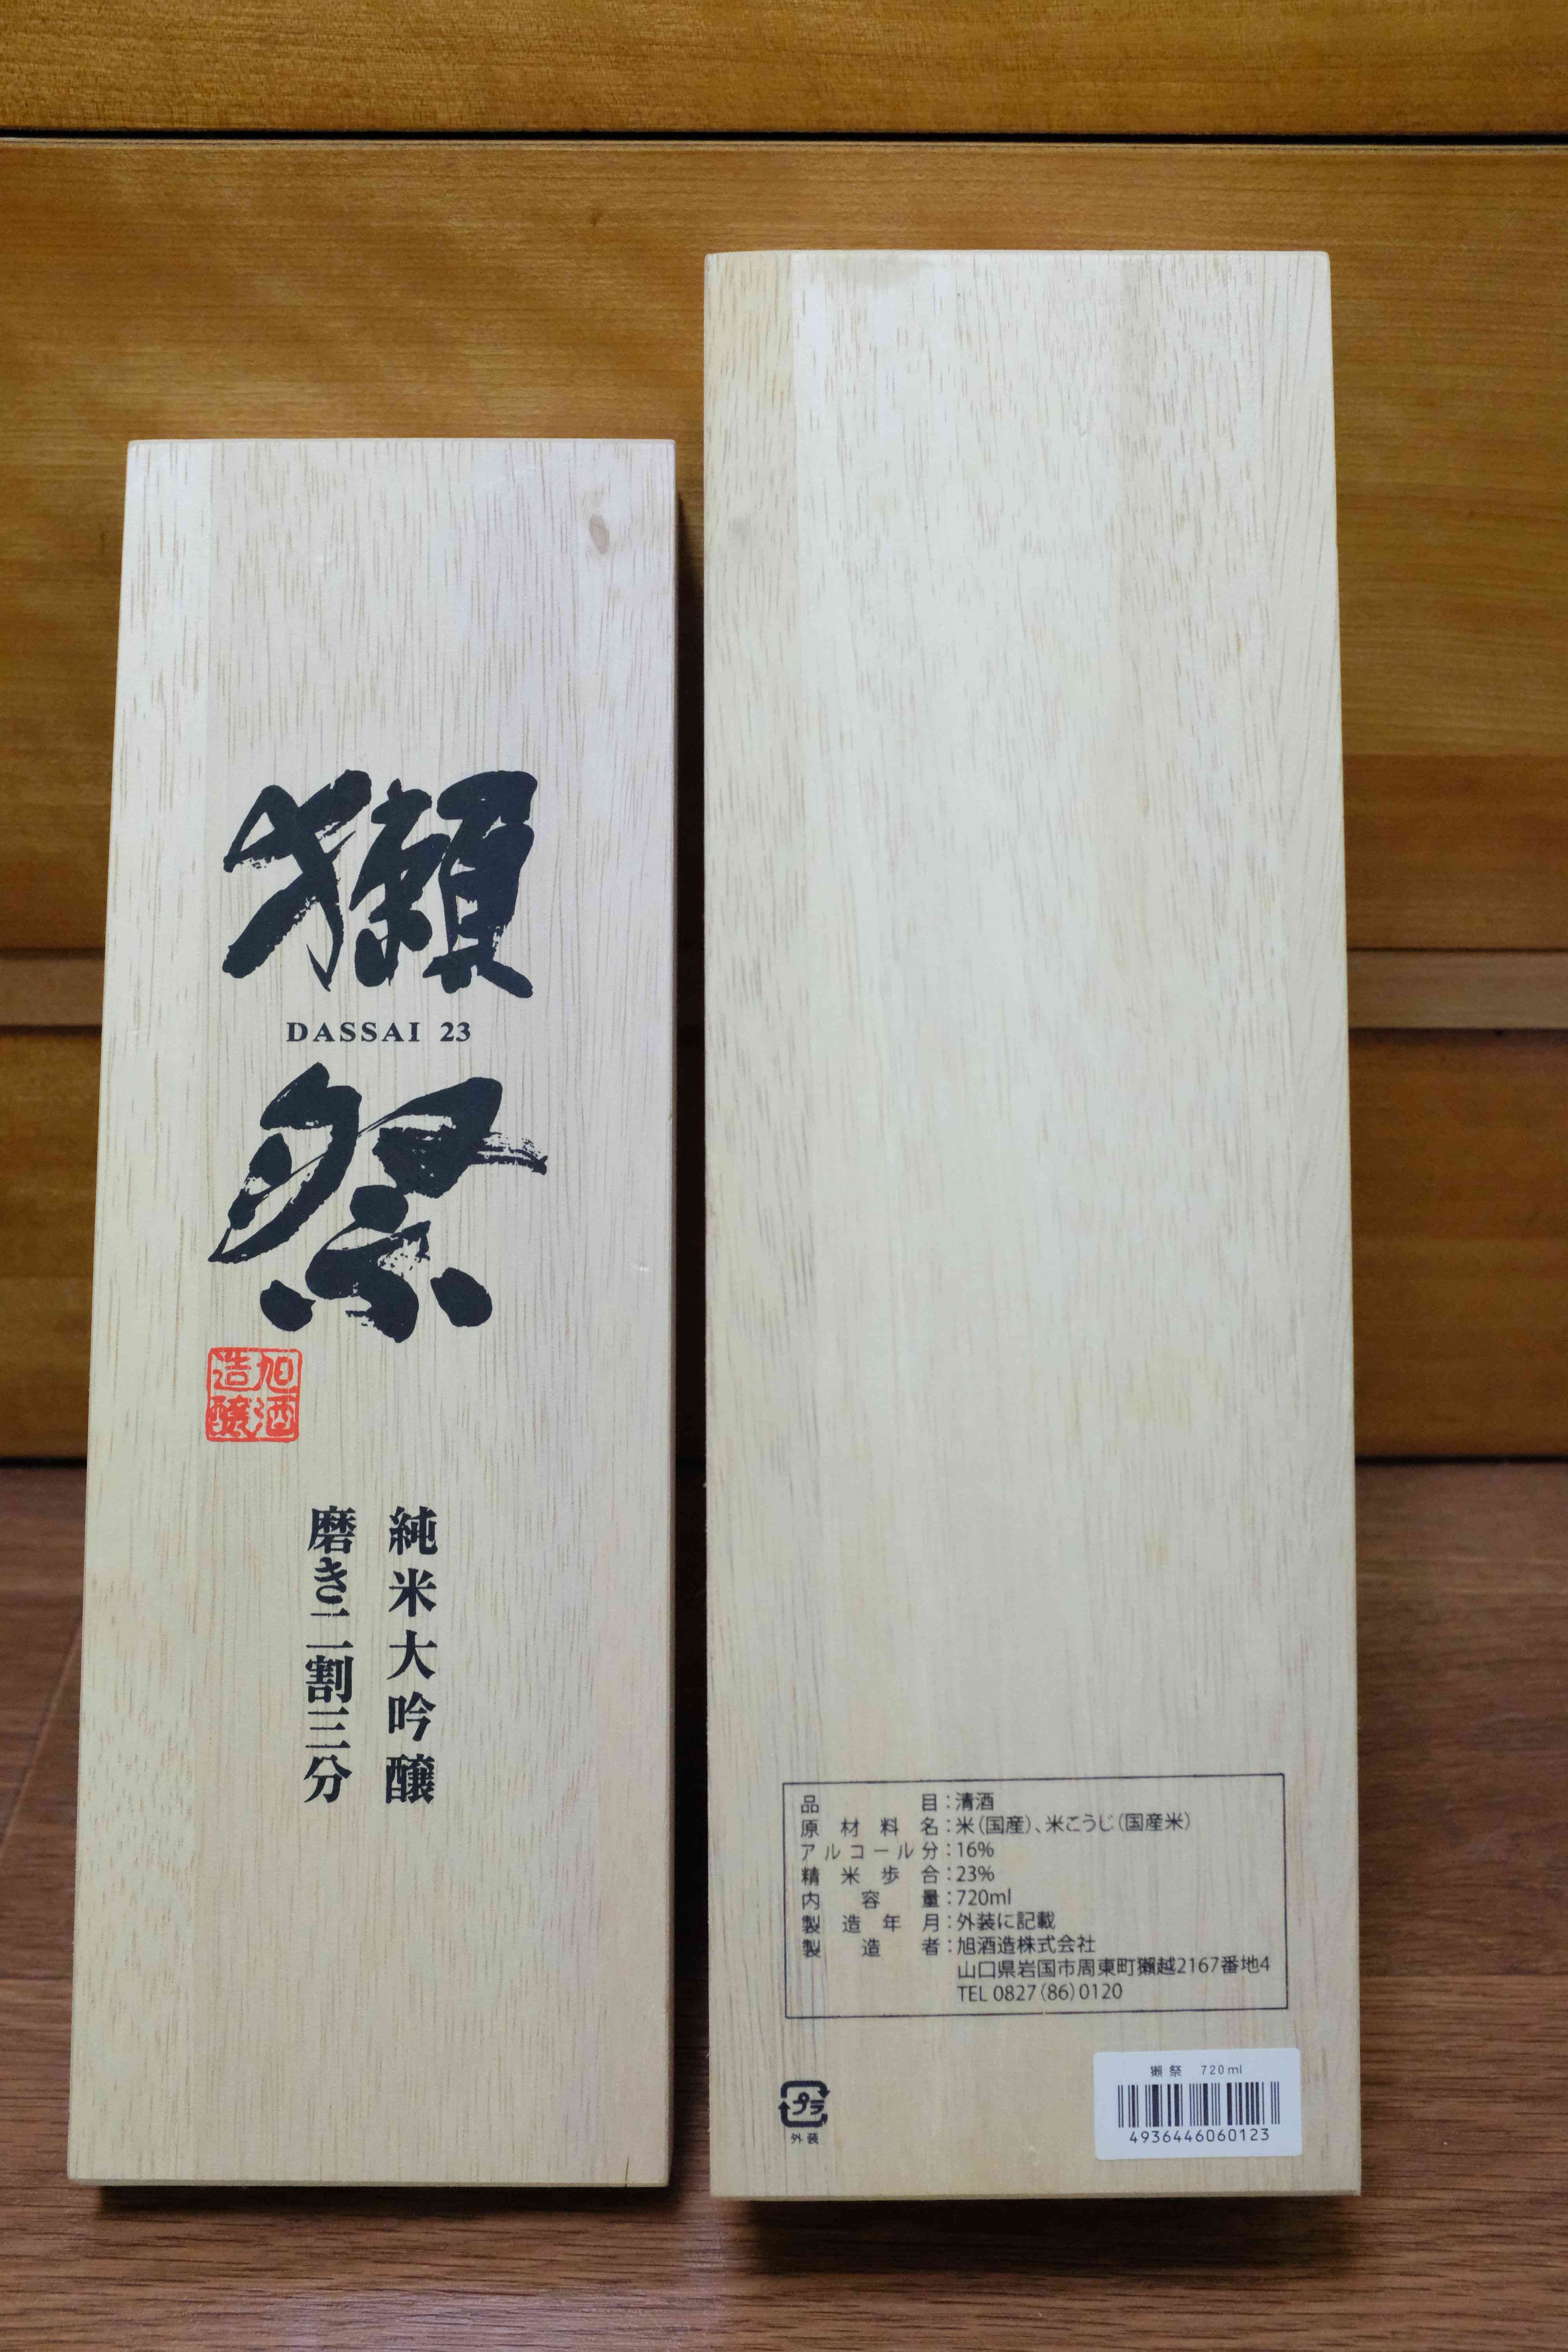 獺
DASSAI 23
祭
旭酒
造醸
純米大吟醸
磨き二割三分
品目：清酒
原材料名：米（国産）、米こうじ（国産米）
アルコール分：16%
精米歩合：23%
内容量：720ml
製造年月：外装に記載
製造者：旭酒造株式会社
山口県岩国市周東町獺越2167番地4
TEL 0827（86）0120
プラ
外装
獺祭 720ml
4936446060123